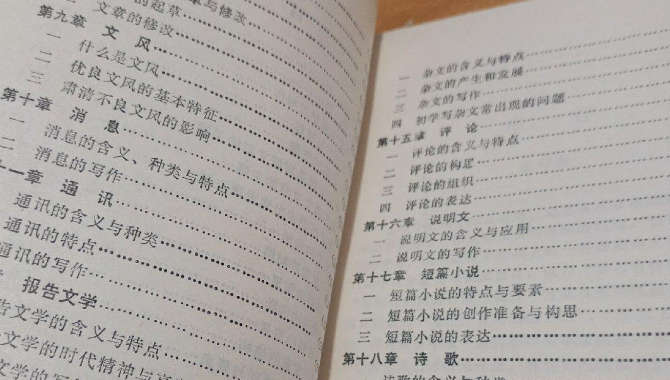 的起草
文章的修改
第九章 文风
一 什么是文风
二 优良文风的基本特征
三 肃清不良文风的影响
第十章 消息
一 消息的含义、种类与特点
二 消息的写作
十一章 通讯
通讯的含义与种类
通讯的特点
通讯的写作
报告文学
告文学的含义与特点
文学的时代精神与
一 杂文的含义与特点
二 杂文的产生和发展
三 杂文的写作
四 初学写杂文常出现的问题
第十五章 评论
一 评论的含义与特点
二 评论的构思
三 评论的组织
四 评论的表达
第十六章 说明文
一 说明文的含义与应用
二 说明文的写作
第十七章 短篇小说
一 短篇小说的特点与要素
二 短篇小说的创作准备与构思
三 短篇小说的表达
第十八章 诗歌
诗歌的含义与种类